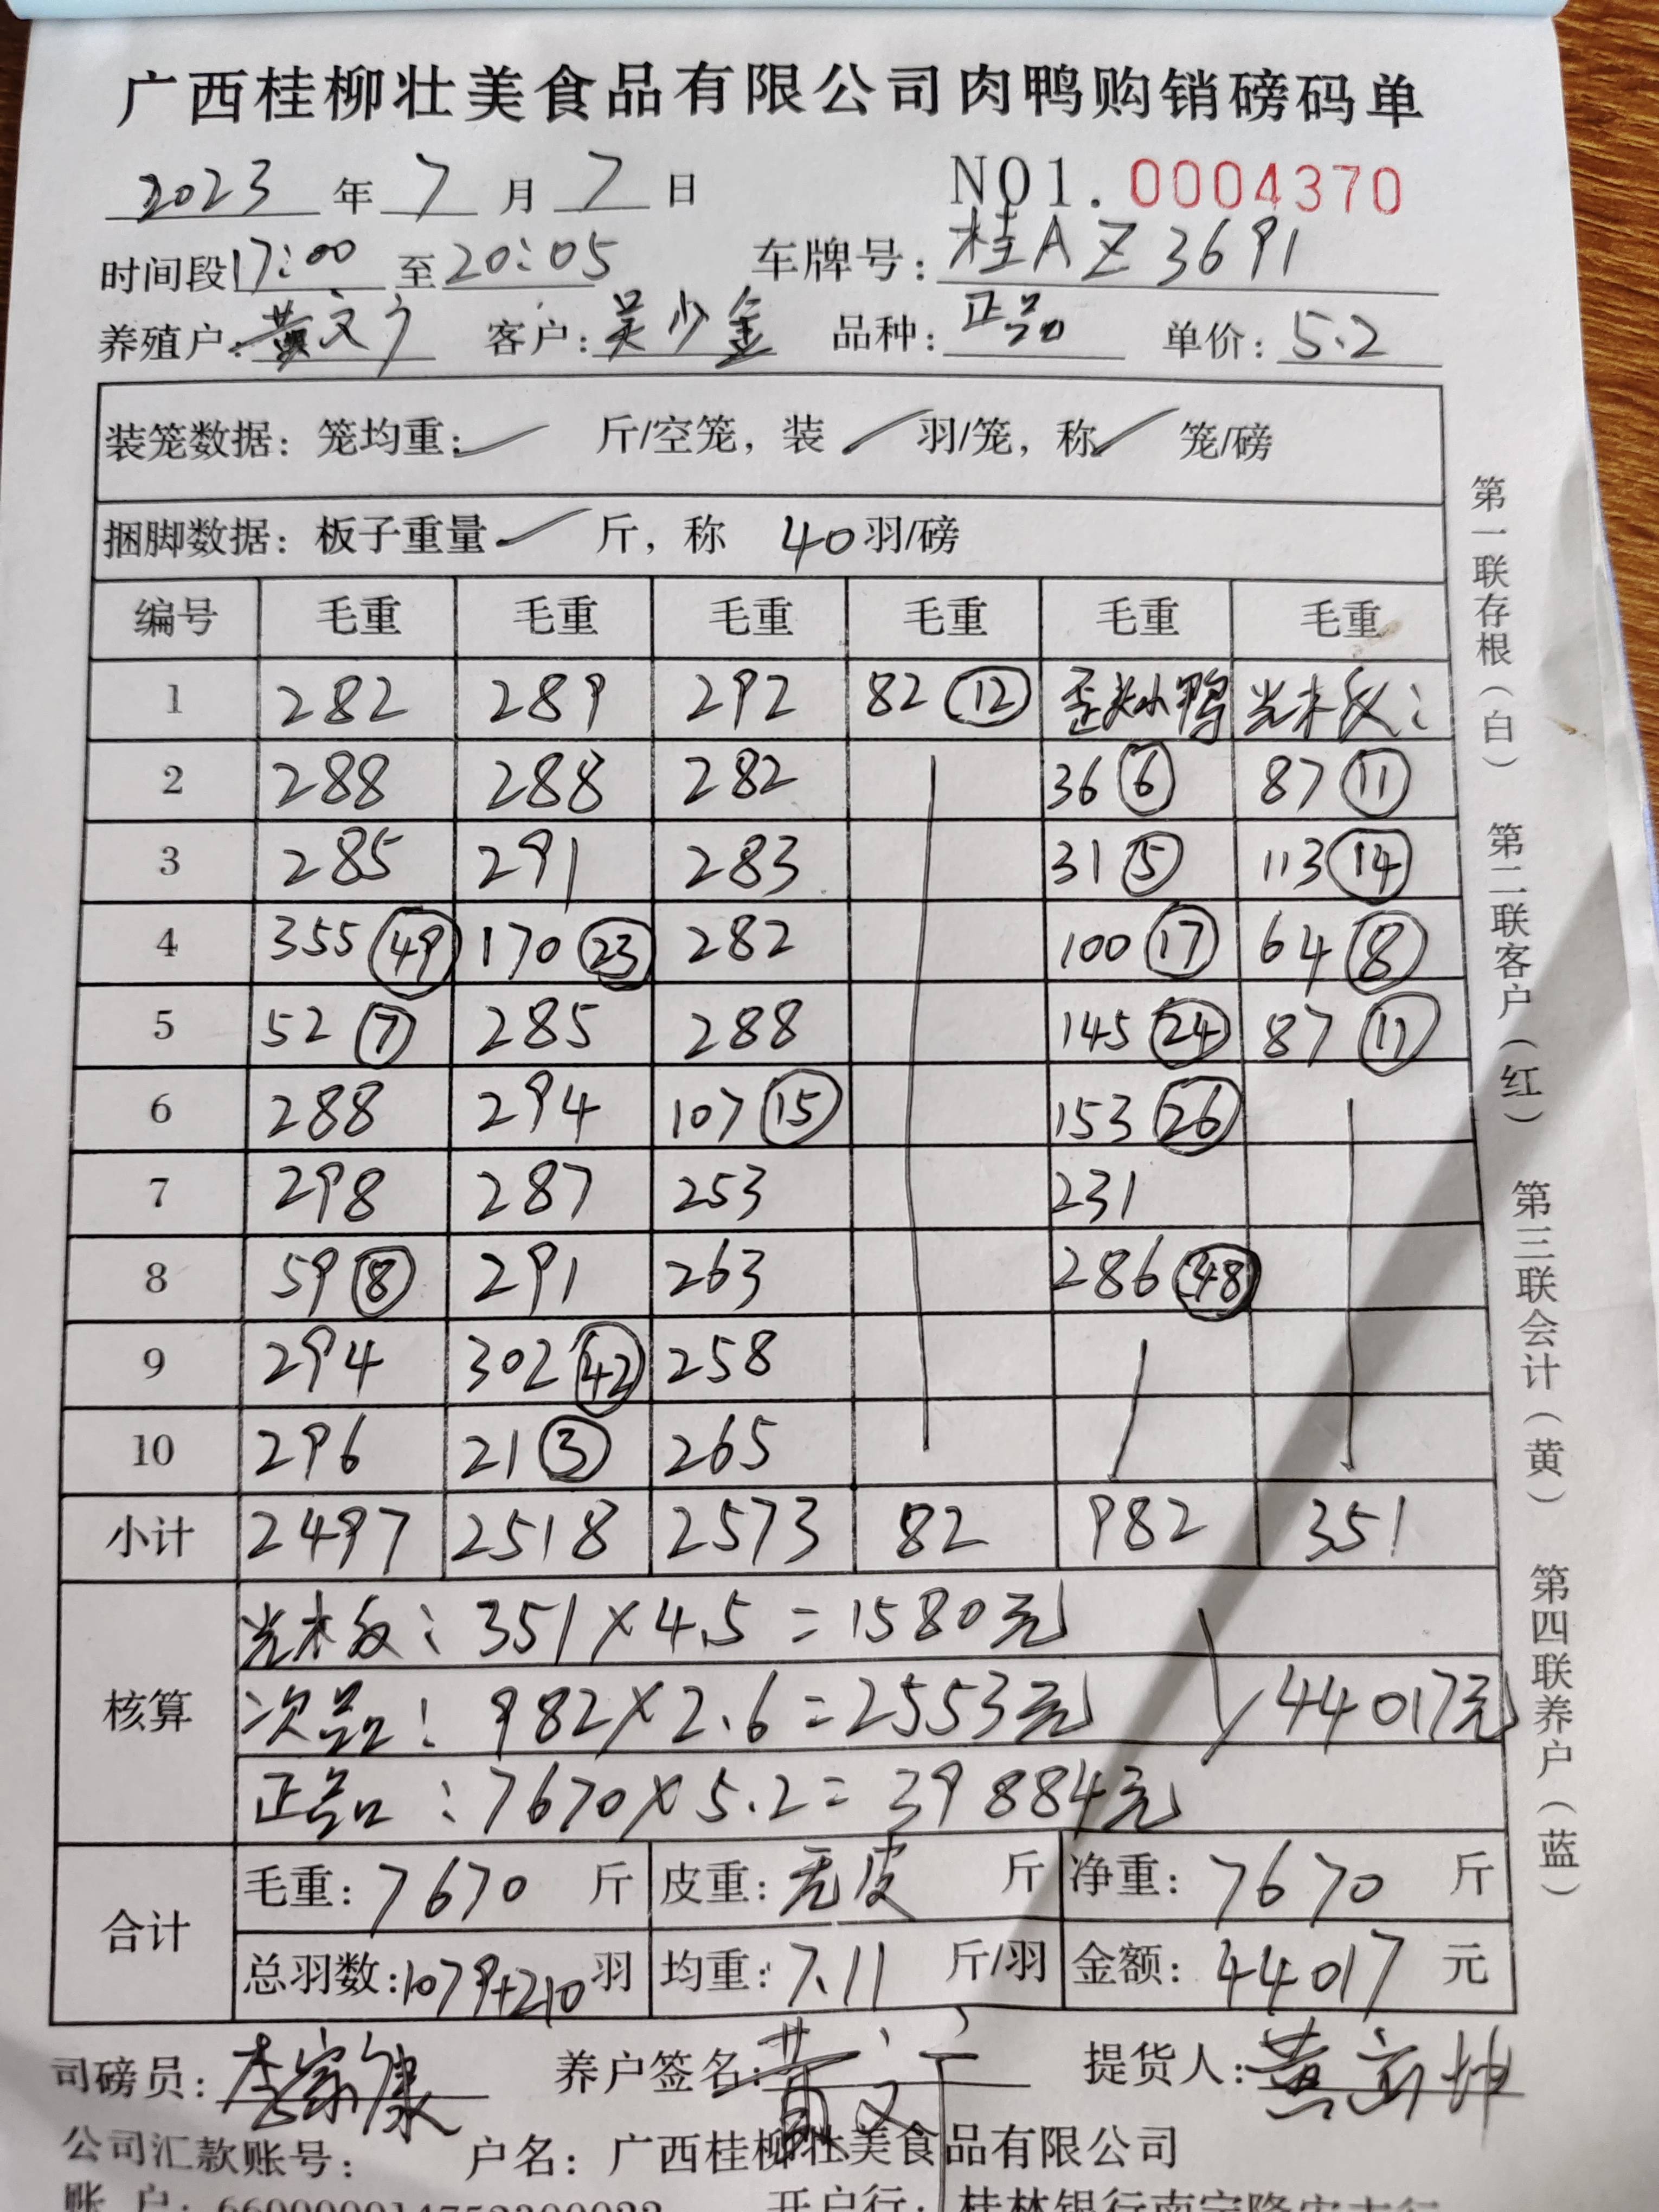 广西桂柳壮美食品有限公司肉鸭购销磅码单
2023 年 7 月 7 日 NO1. 0004370
时间段17:00 至20:05 车牌号: 桂AZ3691
养殖户: 黄文宁 客户: 吴少金 品种: 正品 单价: 5.2
装笼数据: 笼均重: 斤/空笼, 装 羽/笼, 称 笼/磅
捆脚数据: 板子重量 斤, 称 40羽/磅
编号 毛重 毛重 毛重 毛重 毛重 毛重
1 282 289 292 82 ⑫ 歪头小鸭 光木板:
2 288 288 282 36 ⑥ 87 ⑪
3 285 291 283 31 ⑤ 113 ⑭
4 355 ㊾ 170 ㉓ 282 100 ⑰ 64 ⑧
5 52 ⑦ 285 288 145 ㉔ 87 ⑪
6 288 294 107 ⑮ 153 ㉖
7 298 287 253 231
8 59 ⑧ 291 263 286 ㊽
9 294 302 ㊷ 258
10 296 21 ③ 265
小计 2497 2518 2573 82 982 351
核算
光木板: 351×4.5=1580元
次品: 982×2.6=2553元 44017元
正品: 7670×5.2=39884元
合计
毛重: 7670 斤 皮重: 无皮 斤 净重: 7670 斤
总羽数:1079+210羽 均重: 7.11 斤/羽 金额: 44017 元
司磅员: 李家康 养户签名: 黄文宁 提货人: 黄
公司汇款账号: 户名: 广西桂柳壮美食品有限公司
账 户: 开户行: 桂林银行南宁隆安支行
第一联存根(白) 第二联客户(红) 第三联会计(黄) 第四联养户(蓝)